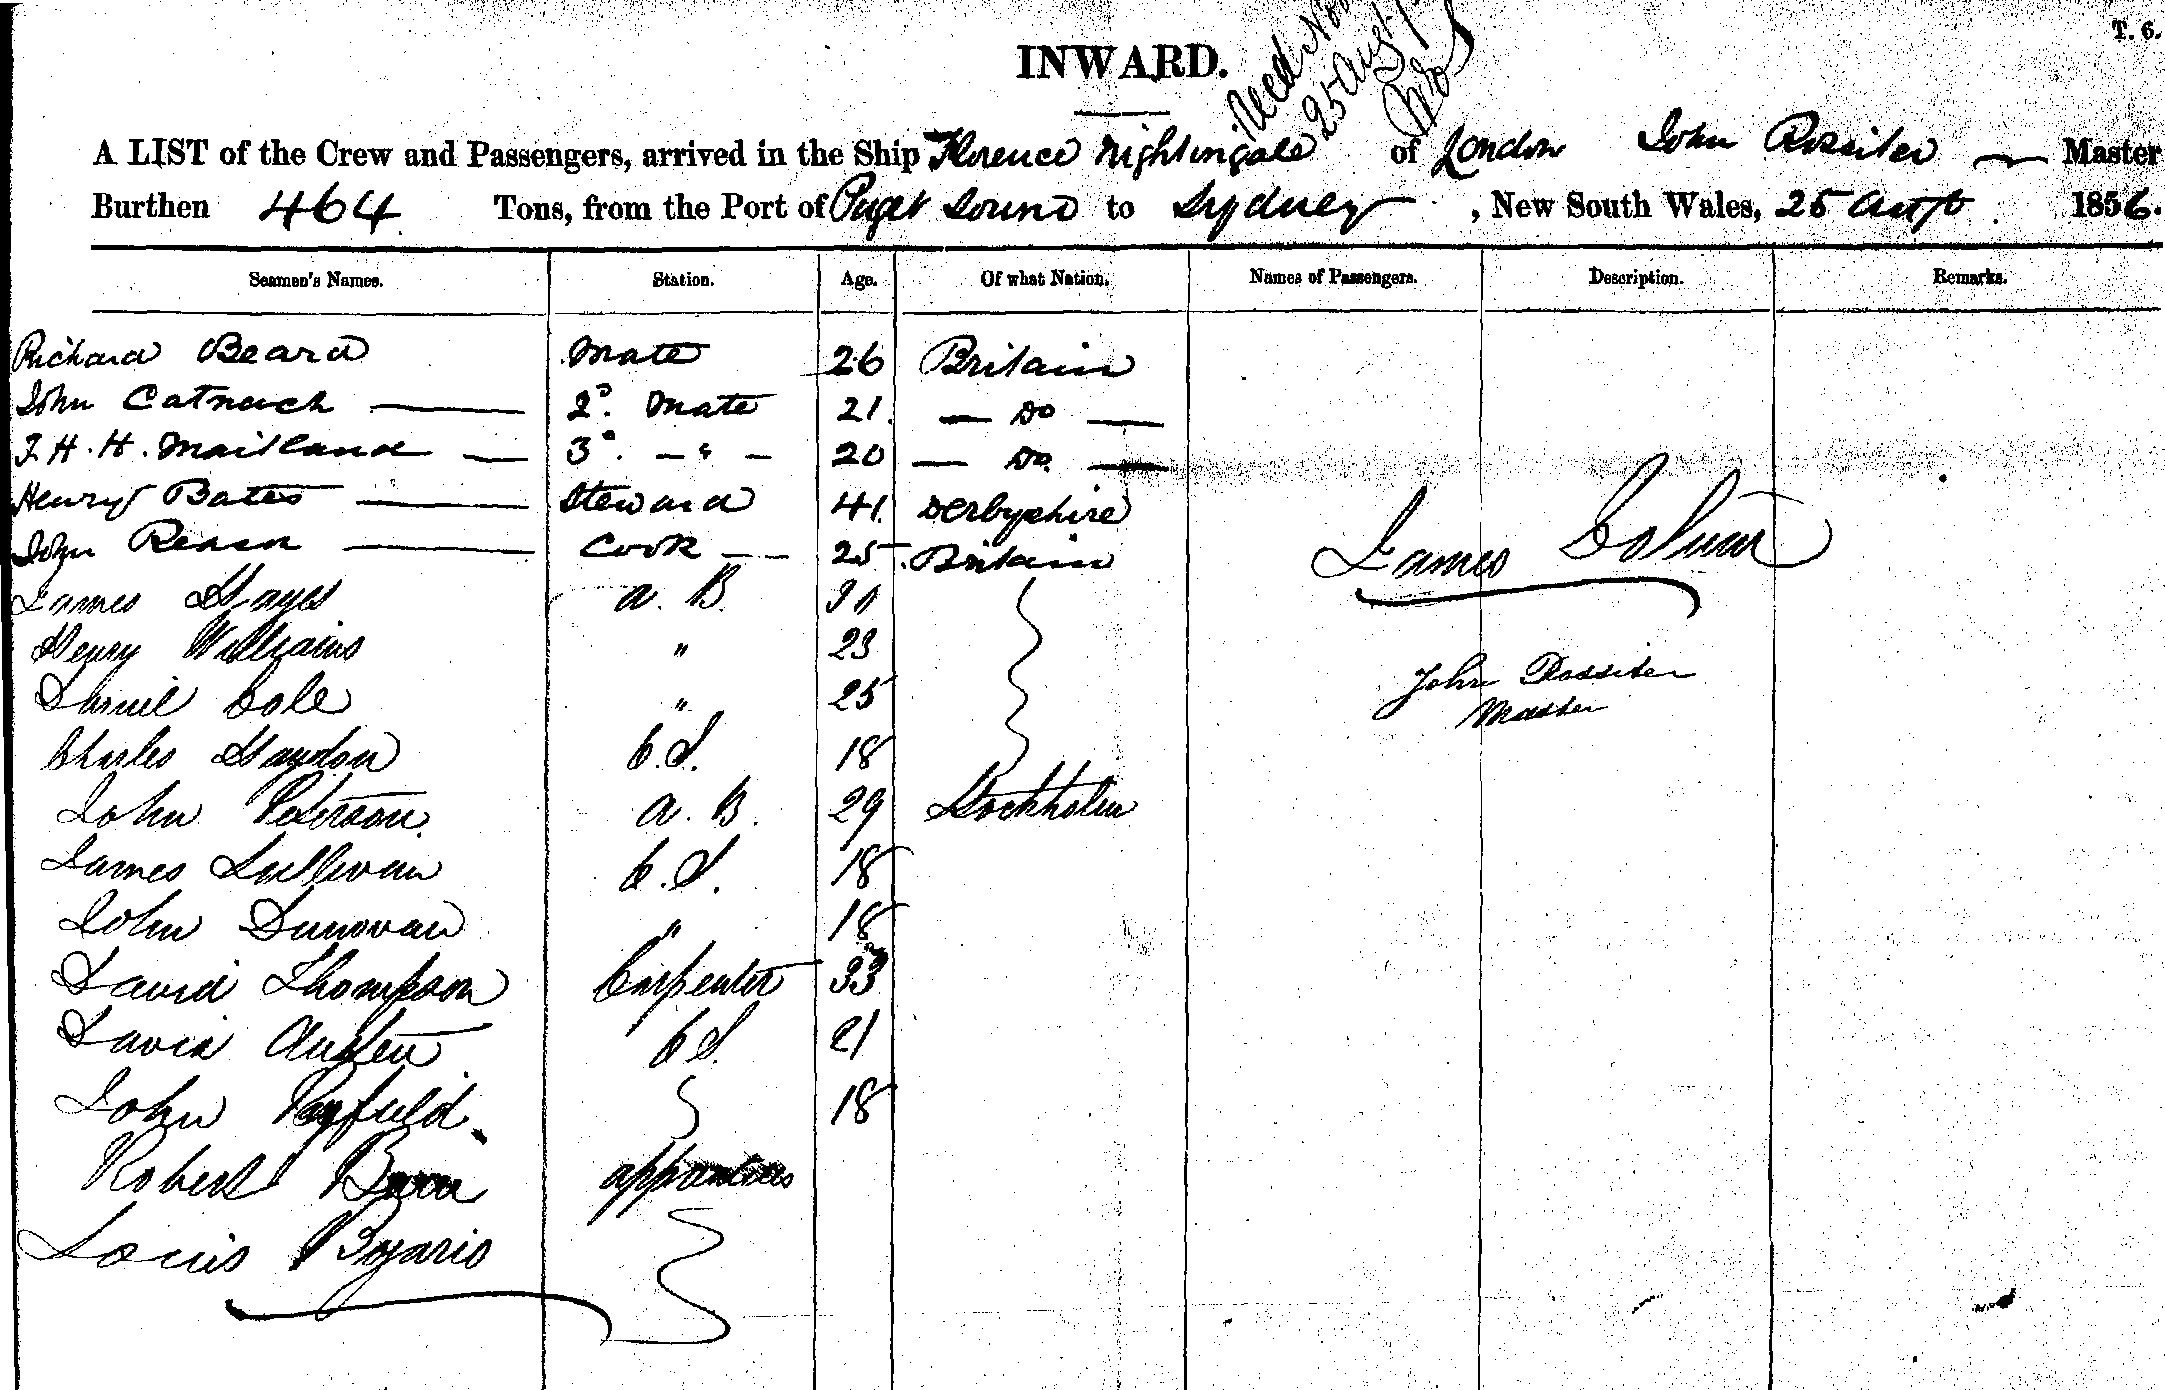 T. 6.
INWARD.
25 Augt
A LIST of the Crew and Passengers, arrived in the Ship Florence Nightingale of London John Rossiter Master
Burthen 464 Tons, from the Port of Puget Sound to Sydney, New South Wales, 25 Augt 1856.
Seamen's Names. Station. Age. Of what Nation. Names of Passengers. Description. Remarks.
Richard Beard Mate 26 Britain
John Catnach 2d. Mate 21 — Do —
J. H. H. Maitland 3d. — " — 20 — Do —
Henry Bates Steward 41 Derbyshire
John Cook 25 Britain
James Colmer
James Hayes A. B.
Henry Williams " 23
Daniel Cole " 25
John Rossiter
Master
Charles Haydon O.S. 18
John Peterson A. B. 29 Stockholm
James Sullivan O.S. 18
John Donovan " 18
David Thompson Carpenter 33
David Austen O S. 21
John Byfield 18
Robert apprentices
Louis